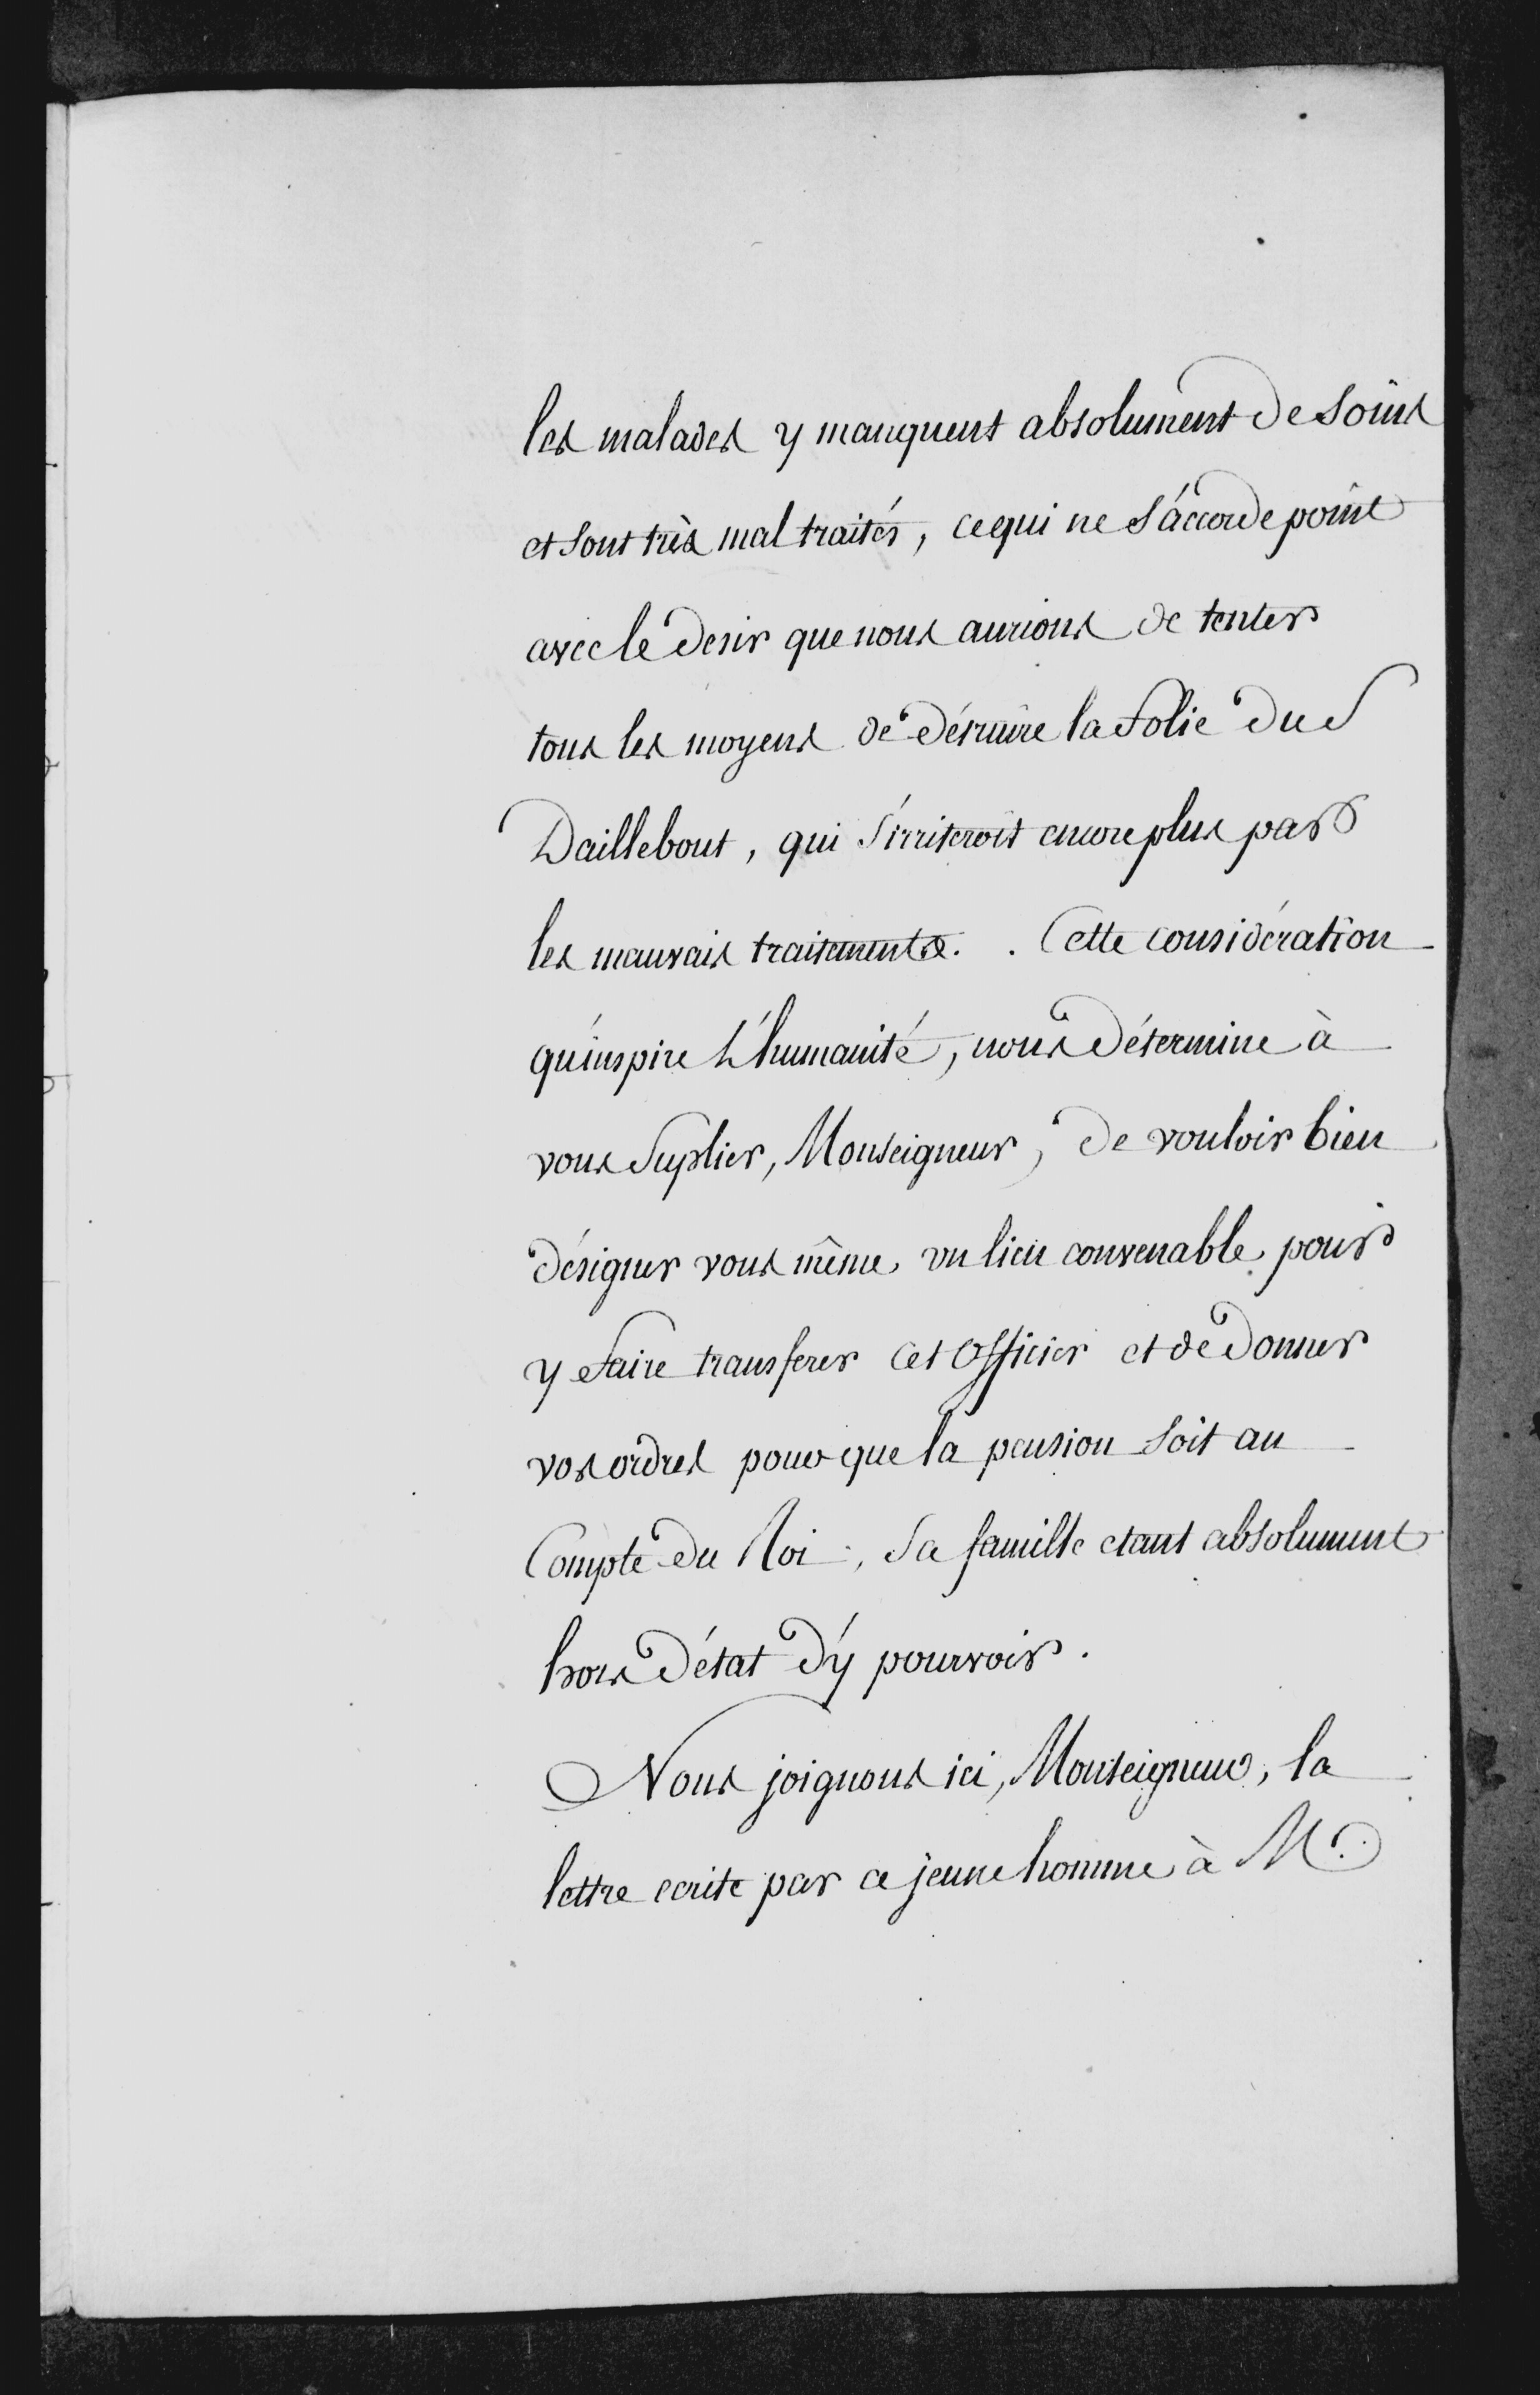 les malades y manquent absolument de soins
et sont très mal traités, ce qui ne s'accorde point
avec le desir que nous aurions de tenter
tous les moyens de détruire la folie du S
Daillebout, qui s'irriteroit encore plus par
les mauvais traitements. . Cette considération
qu'inspire L'humanité, nous détermine à
vous suplier, Monseigneur, de vouloir bien
désigner vous même, un lieu convenable pour
y faire transferer cet officier et de donner
vos ordres pour que la pension soit au
Compte du Roi, sa famille etant absolument
hors d'état d'y pourvoir.
Nous joignons ici, Monseigneur, la
lettre ecrite par ce jeune homme à M.